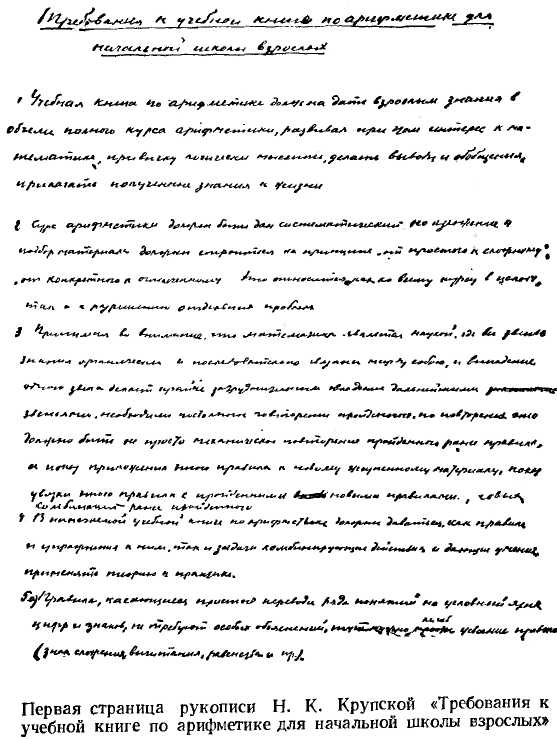 Требования к учебной книге по арифметике для
начальной школы взрослых
1 Учебная книга по арифметике должна дать взрослым знания в
объеме полного курса арифметики, развивая при этом интерес к ма-
тематике, привычку логически мыслить, делать выводы и обобщения,
прилагать полученные знания к жизни
2 Курс арифметики должен быть дан систематический изложение и
подбор материала должны строиться на принципе „от простого к сложному“,
„от конкретного к отвлеченному“ Это относится как ко всему курсу в целом,
так и к отдельных проблем
3 Принимая во внимание, что математика является наукой, где все звенья
знания органически и последовательно связаны между собою, и выпадение
одного звена делает крайне затруднительным овладение дальнейшими
звеньями, необходимо постоянное повторение пройденного, но повторение это
должно быть не просто механическое повторение пройденного ранее правила,
а показ приложения этого правила к новому материалу, показ
увязки этого правила с пройденными новыми правилами,
комбинация ранее пройденного
4 В учебной книге по арифметике должны даваться как правила
и упражнения к ним, так и задачи комбинирующие действия и дающие умение
применять теорию к практике.
5 а) Правила, касающиеся простого перевода ряда понятий на условный язык
цифр и знаков, не требуют особых объяснений, усвоение
(знак сложения, вычитания, равенства и пр.)
Первая страница рукописи Н. К. Крупской «Требования к
учебной книге по арифметике для начальной школы взрослых»